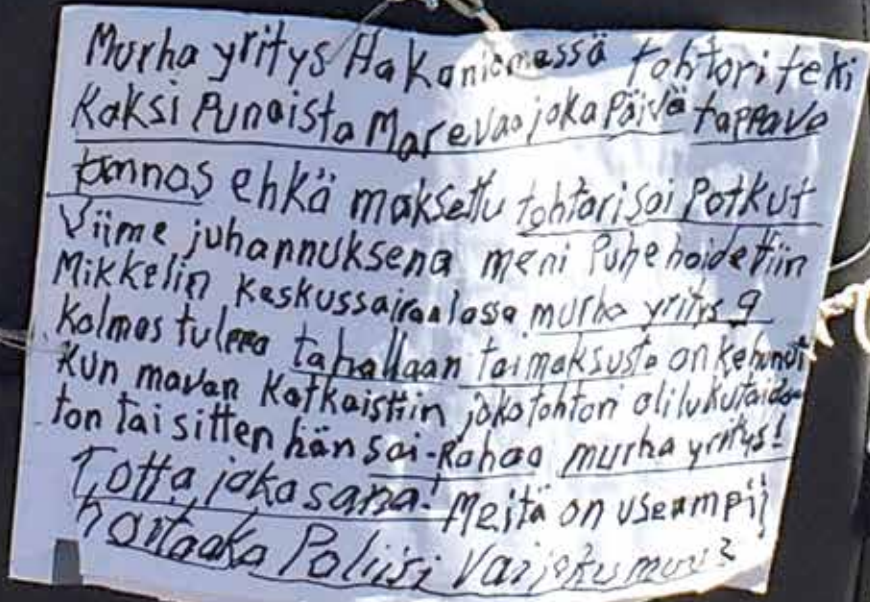 Murha yritys Hakaniemessä tohtori teki
Kaksi Punaista Marevaa joka Päivä tappava
annos ehkä maksettu tohtori sai Potkut
Viime juhannuksena meni Puhe hoidettiin
Mikkelin Keskussairaalassa murha yritys 9
Kolmas tulppa tahallaan tai maksusta on
Kun mavan Katkaistiin joko tohtori oli lukutaido-
ton tai sitten hän sai-Rahaa murha yritys!
Totta joka sana! Meitä on useampii
Poliisi Vai joku muu?